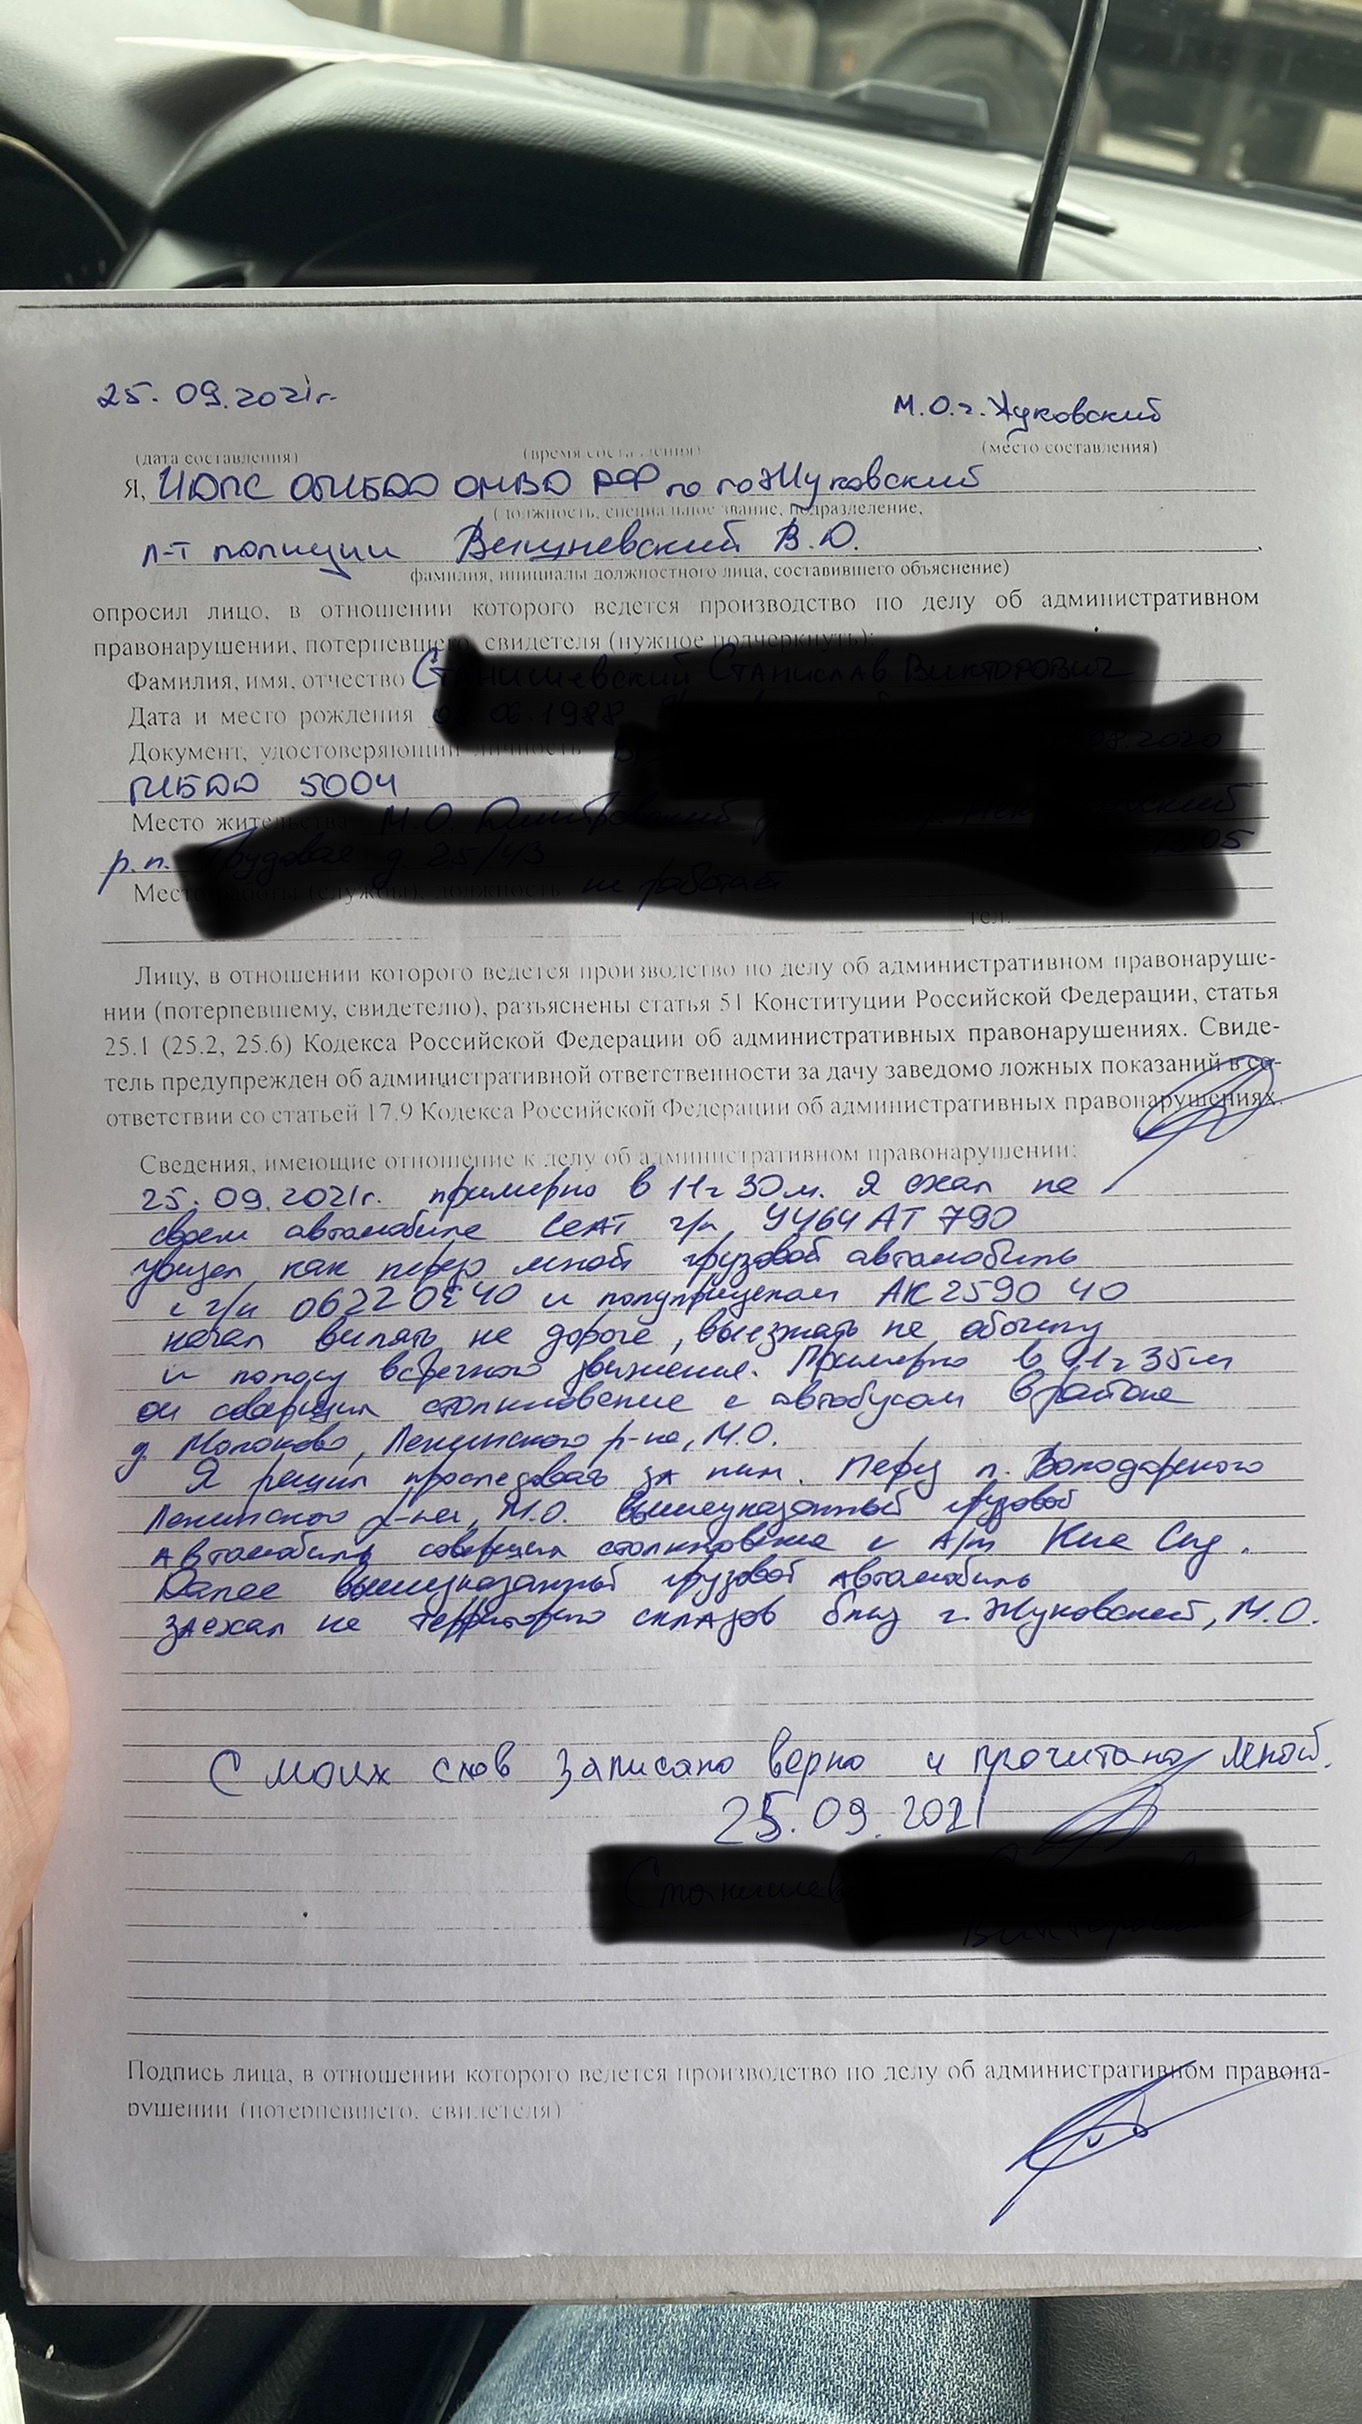 25.09.2021г. М.О. г. Жуковский
(дата составления) (время составления) (место составления)
Я, ИДПС ОГИБДД ОМВД РФ по го Жуковский
(должность, специальное звание, подразделение,
л-т полиции В.Ю.
фамилия, инициалы должностного лица, составившего объяснение)
опросил лицо, в отношении которого ведется производство по делу об административном
правонарушении, потерпевшего, свидетеля (нужное подчеркнуть):
Фамилия, имя, отчество
Дата и место рождения
Документ, удостоверяющий личность
ГИБДД 5004
Место жительства
р.п.
Место работы (службы), должность
тел.
Лицу, в отношении которого ведется производство по делу об административном правонаруше-
нии (потерпевшему, свидетелю), разъяснены статья 51 Конституции Российской Федерации, статья
25.1 (25.2, 25.6) Кодекса Российской Федерации об административных правонарушениях. Свиде-
тель предупрежден об административной ответственности за дачу заведомо ложных показаний в со-
ответствии со статьей 17.9 Кодекса Российской Федерации об административных правонарушениях.
Сведения, имеющие отношение к делу об административном правонарушении:
25.09.2021г. примерно в 11ч 30м. Я ехал на
своем автомобиле Сеат г/н У464АТ 790
увидел как передо мной грузовой автомобиль
с г/н О622ОЕ40 и полуприцепом АК2590 40
начал вилять на дороге, выезжать на обочину
и полосу встречного движения. Примерно в 11ч 35м
он совершил столкновение с автобусом в районе
д. Молоково, Ленинского р-на, М.О.
Я решил проследовать за ним. Перед п. Володарского
Ленинского р-на, М.О. вышеуказанный грузовой
автомобиль совершил столкновение с А/м Киа Сид.
Далее вышеуказанный грузовой автомобиль
заехал на территорию складов близ г. Жуковский, М.О.
С моих слов записано верно и прочитано мной.
25.09.2021
Подпись лица, в отношении которого ведется производство по делу об административном правона-
рушении (потерпевшего, свидетеля)